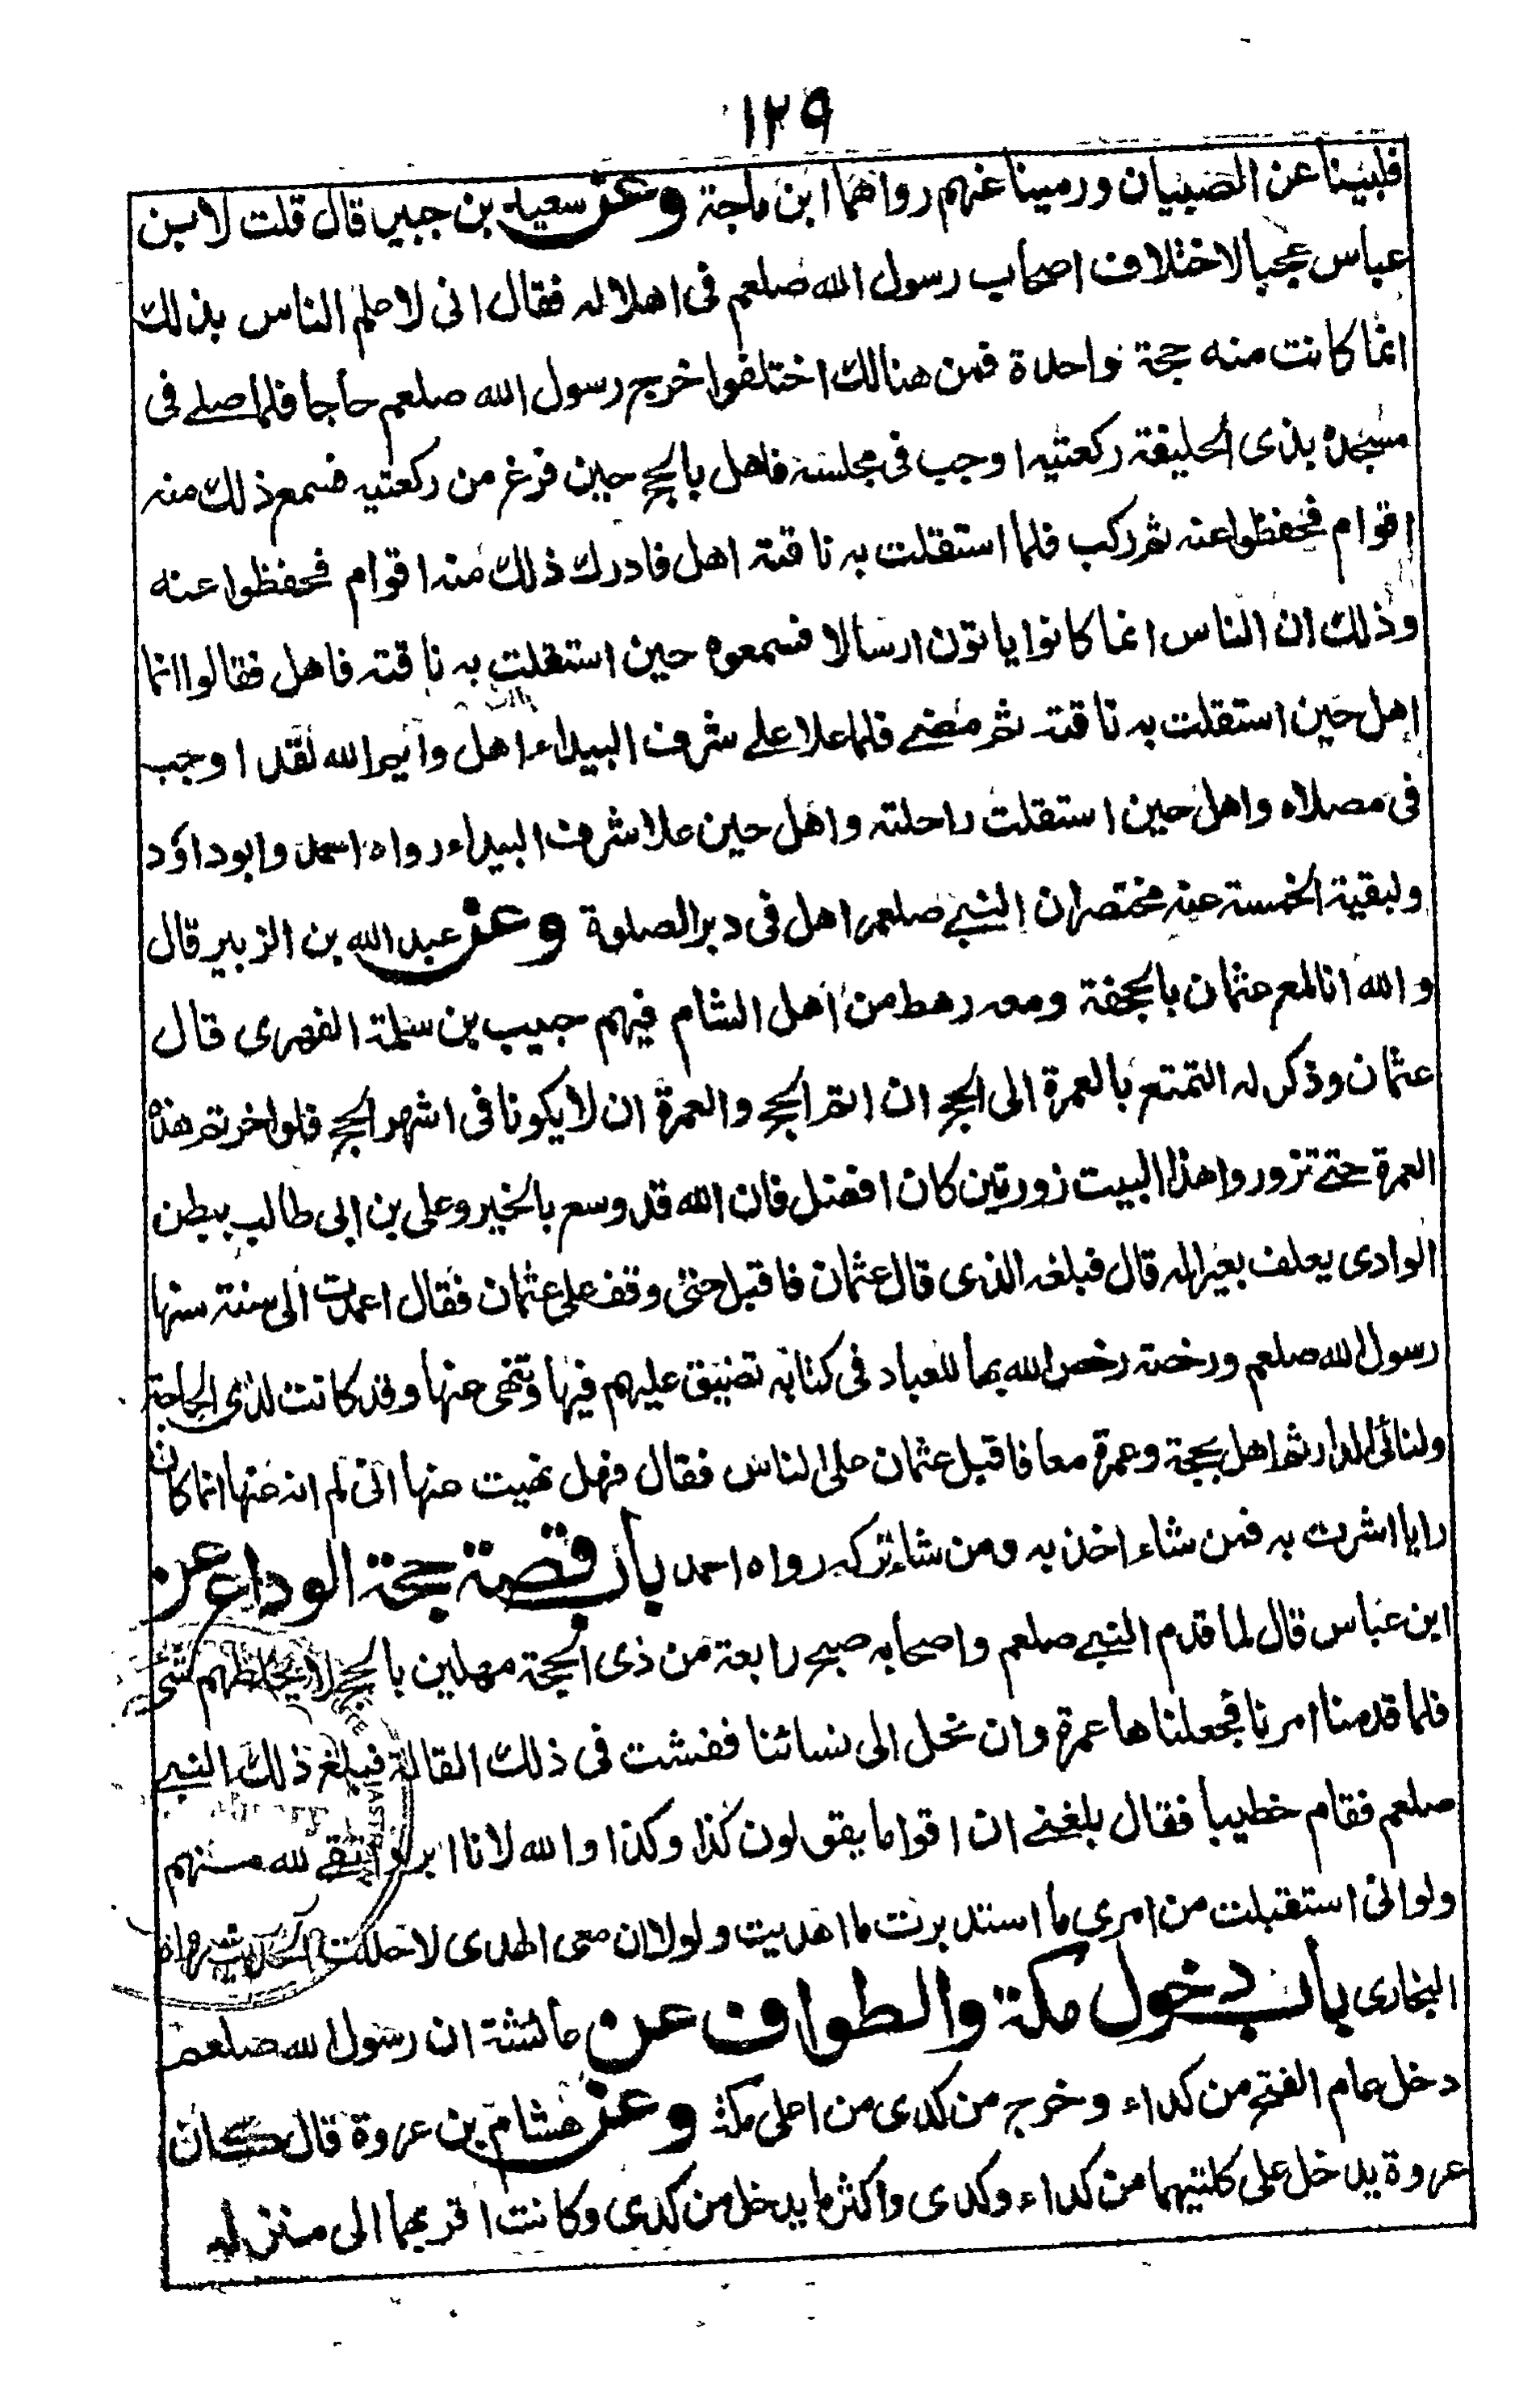 ١٢٩
فلبينا عن الصبيان ورمينا عنهم رواهما ابن ماجة وعن سعيد بن جبير قال قلت لابن
عباس عجبا لاختلاف اصحاب رسول الله صلعم فى اهلاله فقال انى لاعلم الناس بذلك
انما كانت منه حجة واحدة فمن هنالك اختلفوا خرج رسول الله صلعم حاجا فلما صلے فى
مسجده بذى الحليفة ركعتيه اوجب فى مجلسه فاهل بالحج حين فرغ من ركعتيه فسمع ذلك منه
اقوام فحفظوا عنه ثم ركب فلما استقلت به ناقته اهل فادرك ذلك منه اقوام فحفظوا عنه
وذلك ان الناس انما كانوا ياتون ارسالا فسمعوه حين استقلت به ناقته فاهل فقالوا انما
اهل حين استقلت به ناقته ثم مضے فلما علا علے شرف البيداء اهل وايم الله لقد اوجب
فى مصلاه واهل حين استقلت راحلته واهل حين علا شرف البيداء رواه احمد وابوداؤد
ولبقية الخمسة عنه مختصران النبے صلعم اهل فى دبر الصلوة وعن عبد الله بن الزبير قال
والله انا لمع عثمان بالجحفة ومعه رهط من اهل الشام فيهم حبيب بن سلمة الفهرى قال
عثمان وذكر له التمتع بالعمرة الى الحج ان اتم الحج والعمرة ان لا يكونا فى اشهر الحج فلو اخرتم هذه
العمرة حتے تزوروا هذا البيت زورتين كان افضل فان الله قد وسع بالخير وعلى بن ابى طالب ببطن
الوادى يعلف بعيرا له قال فبلغه الذى قال عثمان فاقبل حتى وقف على عثمان فقال اعمدت الى سنة سنها
رسول الله صلعم ورخصة رخص الله بها للعباد فى كتابه تضيق عليهم فيها وتنهى عنها وقد كانت لذى الحاجة
ولنائى الدار ثم اهل بحجة وعمرة معا فاقبل عثمان على الناس فقال فهل نهيت عنها انى لم انه عنها انما كان
رايا اشرت به فمن شاء اخذ به ومن شاء تركه رواه احمد باب قصة حجة الوداع عن
ابن عباس قال لما قدم النبے صلعم واصحابه صبح رابعة من ذى الحجة مهلين بالحج لا يخالطهم شئ
فلما قدمنا امرنا فجعلناها عمرة وان نحل الى نسائنا ففشت فى ذلك القالة فبلغ ذلك النبے
صلعم فقام خطيبا فقال بلغنے ان اقواما يقولون كذا وكذا والله لانا ابر واتقے لله منهم
ولو انى استقبلت من امرى ما استدبرت ما اهديت ولولا ان معى الهدى لاحللت الحديث رواه
البخارى باب دخول مكة والطواف عن عائشة ان رسول الله صلعم
دخل عام الفتح من كداء وخرج من كدى من اعلى مكة وعن هشام بن عروة قال كان
عروة يدخل على كلتيهما من كداء وكدى واكثر ما يدخل من كدى وكانت اقربهما الى منزله